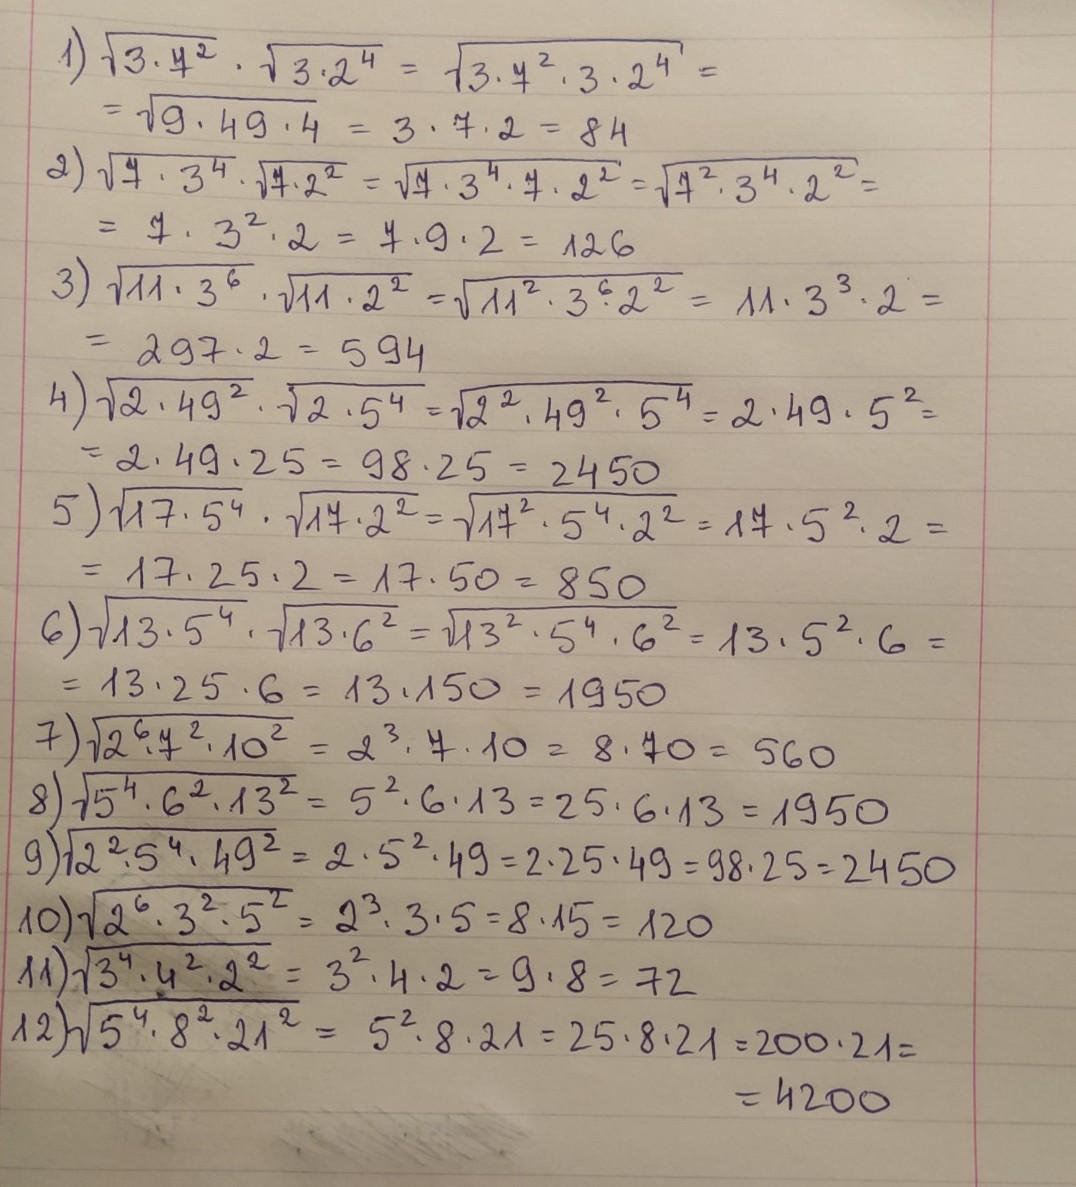 1) √3·7² · √3·2⁴ = √3·7²·3·2⁴ =
= √9·49·4 = 3·7·2 = 84
2) √7·3⁴ · √7·2² = √7·3⁴·7·2² = √7²·3⁴·2² =
= 7·3²·2 = 7·9·2 = 126
3) √11·3⁶ · √11·2² = √11²·3⁶·2² = 11·3³·2 =
= 297·2 = 594
4) √2·49² · √2·5⁴ = √2²·49²·5⁴ = 2·49·5² =
= 2·49·25 = 98·25 = 2450
5) √17·5⁴ · √17·2² = √17²·5⁴·2² = 17·5²·2 =
= 17·25·2 = 17·50 = 850
6) √13·5⁴ · √13·6² = √13²·5⁴·6² = 13·5²·6 =
= 13·25·6 = 13·150 = 1950
7) √2⁶·7²·10² = 2³·7·10 = 8·70 = 560
8) √5⁴·6²·13² = 5²·6·13 = 25·6·13 = 1950
9) √2²·5⁴·49² = 2·5²·49 = 2·25·49 = 98·25 = 2450
10) √2⁶·3²·5² = 2³·3·5 = 8·15 = 120
11) √3⁴·4²·2² = 3²·4·2 = 9·8 = 72
12) √5⁴·8²·21² = 5²·8·21 = 25·8·21 = 200·21 =
= 4200